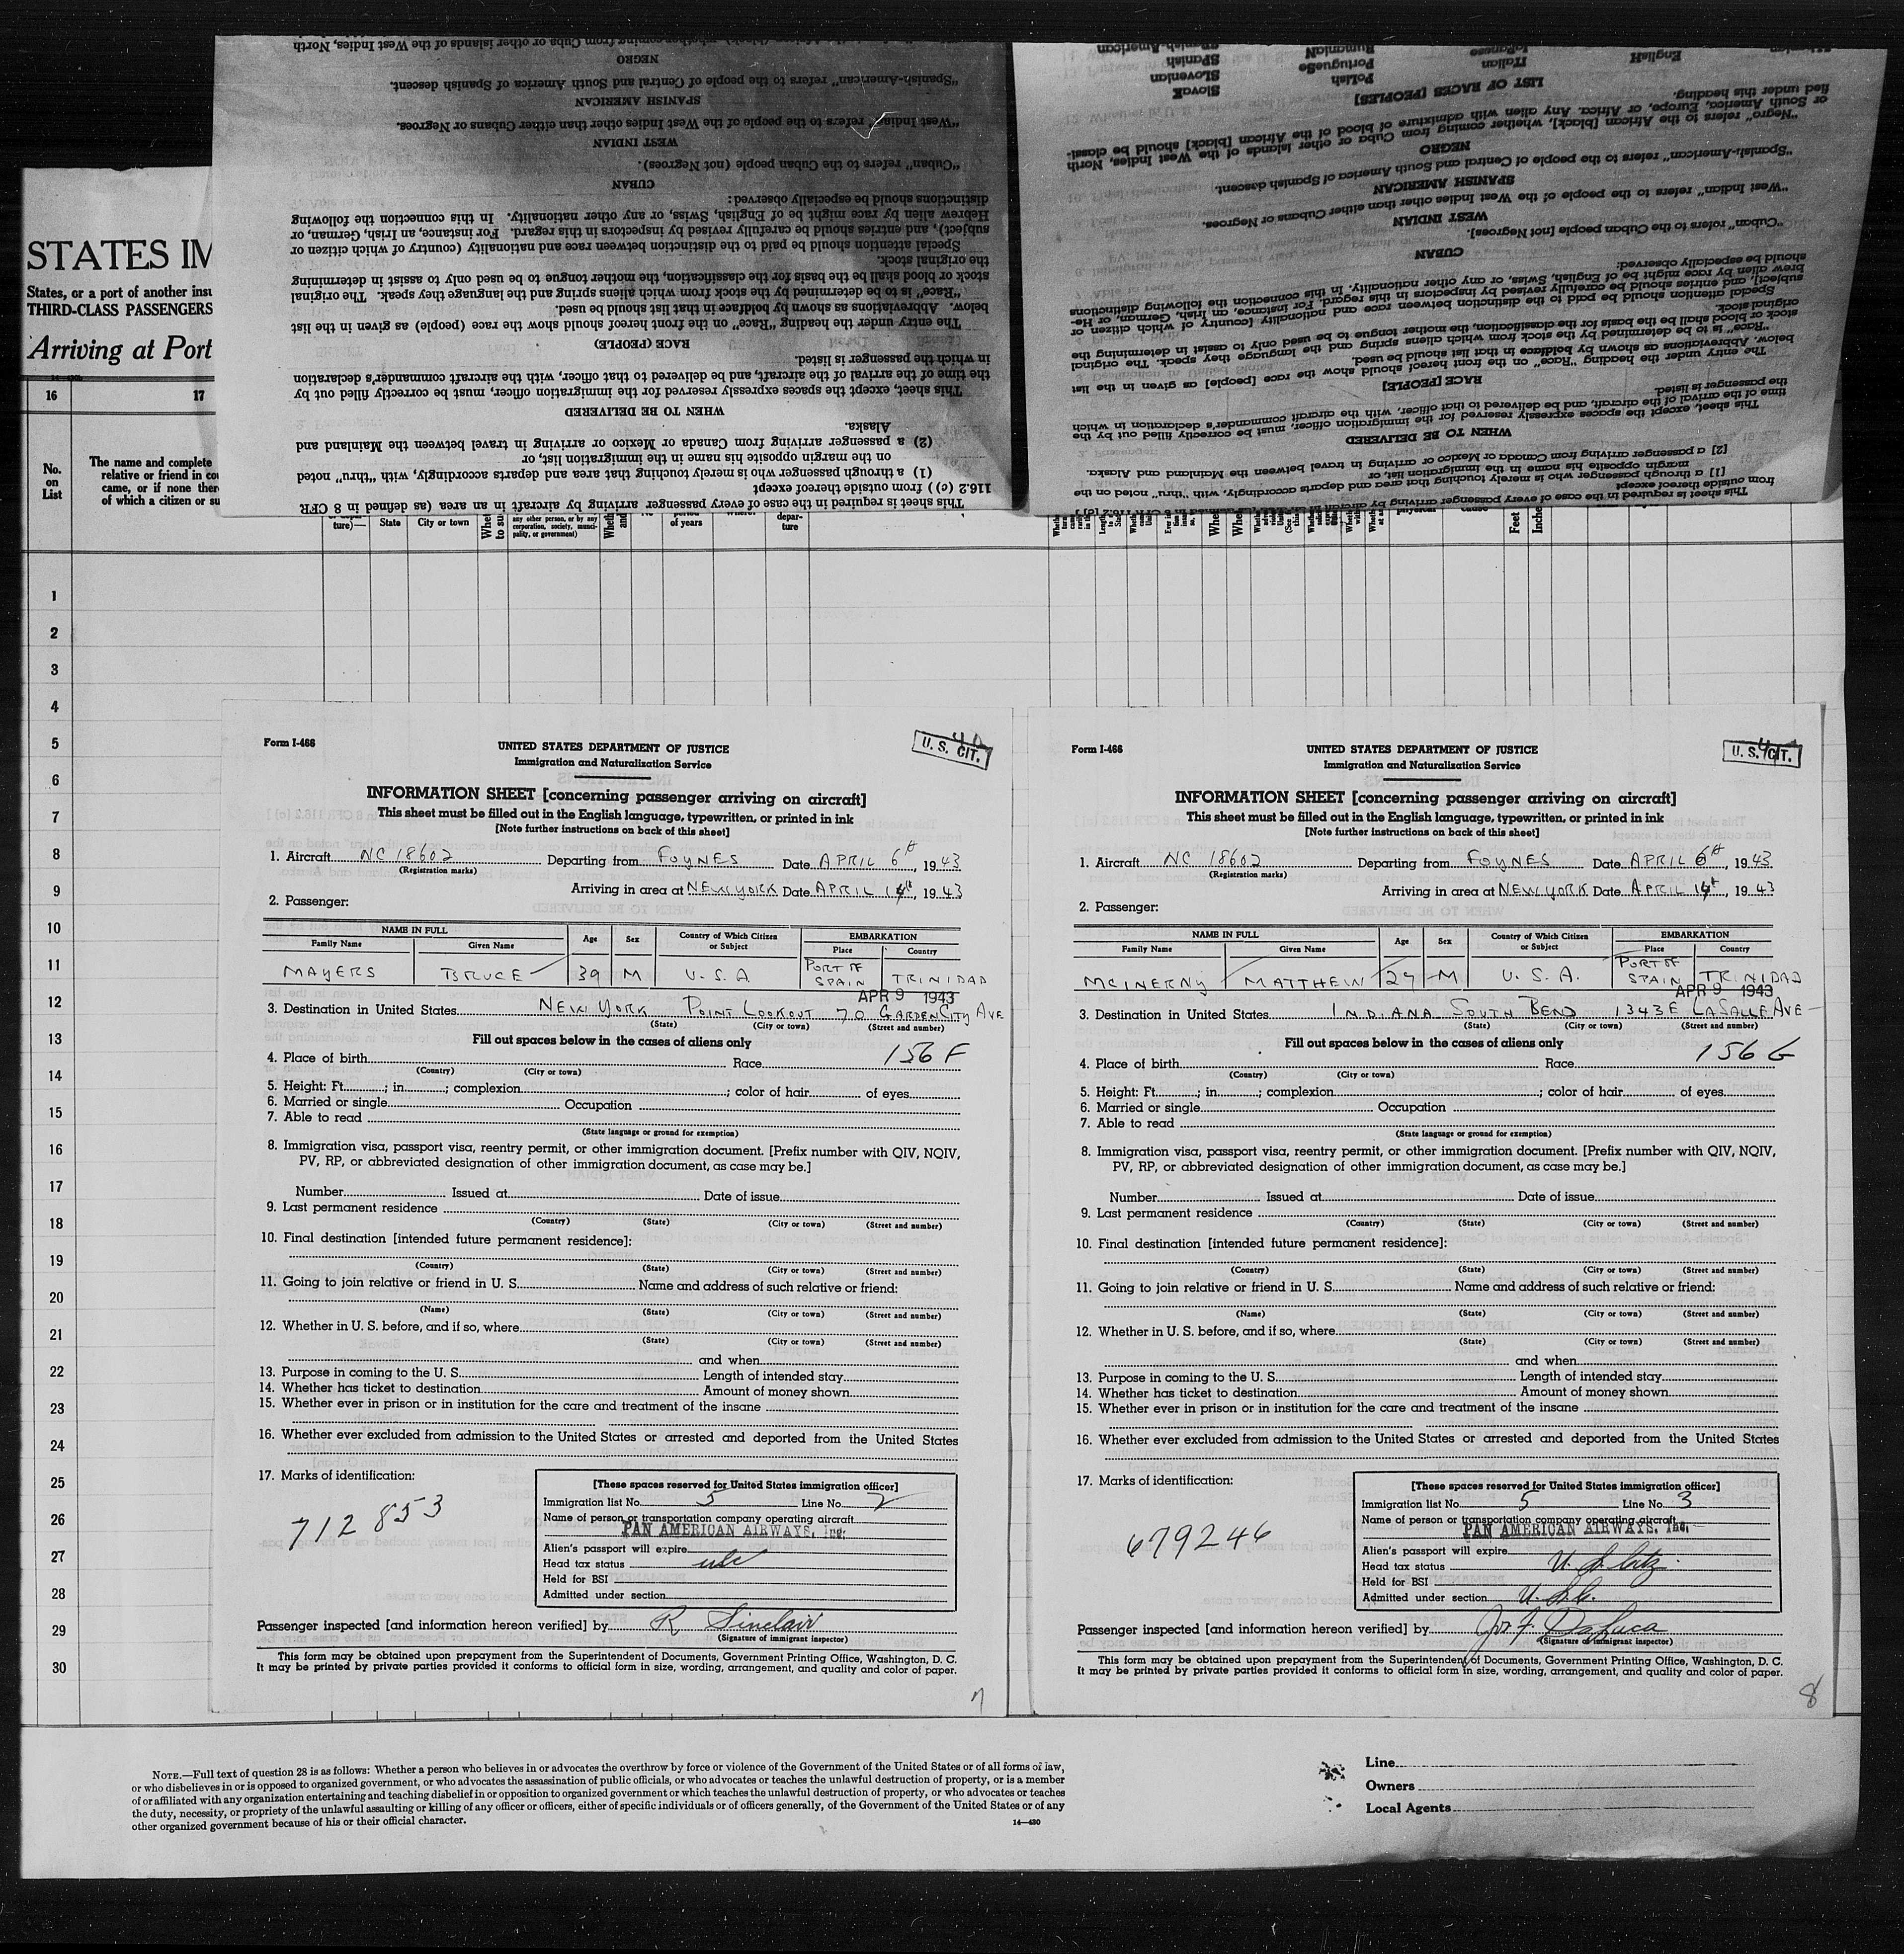 "Spanish-American" refers to the people of Central and South America of Spanish descent.
NEGRO
SPANISH AMERICAN
"West Indian" refers to the people of the West Indies other than either Cubans or Negroes.
WEST INDIAN
"Cuban" refers to the Cuban people (not Negroes).
CUBAN
distinctions should be especially observed:
Hebrew alien by race might be of English, Swiss, or any other nationality. In this connection the following
subject), and entries should be carefully revised by inspectors in this regard. For instance, an Irish, German, or
Special attention should be paid to the distinction between race and nationality (country of which citizen or
the original stock.
stock or blood shall be the basis for the classification, the mother tongue to be used only to assist in determining
"Race" is to be determined by the stock from which aliens spring and the language they speak. The original
below. Abbreviations as shown by boldface in that list should be used.
The entry under the heading "Race" on the front hereof should show the race (people) as given in the list
RACE (PEOPLE)
in which the passenger is listed.
the time of the arrival of the aircraft, and be delivered to that officer, with the aircraft commander's declaration
This sheet, except the spaces expressly reserved for the immigration officer, must be correctly filled out by
WHEN TO BE DELIVERED
Alaska.
(2) a passenger arriving from Canada or Mexico or arriving in travel between the Mainland and
on the margin opposite his name in the immigration list, or
(1) a through passenger who is merely touching that area and departs accordingly, with "thru" noted
116.2 (c)) from outside thereof except
This sheet is required in the case of every passenger arriving by aircraft in an area (as defined in 8 CFR
Slovak
Slovenian
Spanish
Polish
Portuguese
Rumanian
Italian
Japanese
English
LIST OF RACES [PEOPLES]
fied under this heading.
or South America, Europe, or Africa. Any alien with admixture of blood of the African [black] should be classi-
"Negro" refers to the African [black], whether coming from Cuba or other islands of the West Indies, North
NEGRO
"Spanish-American" refers to the people of Central and South America of Spanish descent.
SPANISH AMERICAN
"West Indian" refers to the people of the West Indies other than either Cubans or Negroes.
WEST INDIAN
"Cuban" refers to the Cuban people [not Negroes].
CUBAN
should be especially observed:
brew alien by race might be of English, Swiss, or any other nationality. In this connection the following distinctions
subject], and entries should be carefully revised by inspectors in this regard. For instance, an Irish, German, or He-
Special attention should be paid to the distinction between race and nationality [country of which citizen or
original stock.
stock or blood shall be the basis for the classification, the mother tongue to be used only to assist in determining the
"Race" is to be determined by the stock from which aliens spring and the language they speak. The original
below. Abbreviations as shown by boldface in that list should be used.
The entry under the heading "Race" on the front hereof should show the race [people] as given in the list
RACE [PEOPLE]
the passenger is listed.
time of the arrival of the aircraft, and be delivered to that officer, with the aircraft commander's declaration in which
This sheet, except the spaces expressly reserved for the immigration officer, must be correctly filled out by the
WHEN TO BE DELIVERED
[2] a passenger arriving from Canada or Mexico or arriving in travel between the Mainland and Alaska.
margin opposite his name in the immigration list, or
[1] a through passenger who is merely touching that area and departs accordingly, with "thru" noted on the
from outside thereof except
STATES IM
States, or a port of another insu
THIRD-CLASS PASSENGERS
Arriving at Port
16 17
No. on List
The name and complete
relative or friend in cou
came, or if none ther
of which a citizen or su
ture)— State City or town
any other person, or by any corporation, society, munici- pality, or government)
of years
depar- ture
Feet Inches
1
2
3
4
5
6
7
8
9
10
11
12
13
14
15
16
17
18
19
20
21
22
23
24
25
26
27
28
29
30
Form I-466
U. S. CIT.
UNITED STATES DEPARTMENT OF JUSTICE
Immigration and Naturalization Service
INFORMATION SHEET [concerning passenger arriving on aircraft]
This sheet must be filled out in the English language, typewritten, or printed in ink
[Note further instructions on back of this sheet]
1. Aircraft NC 18602 Departing from FOYNES Date APRIL 6th, 1943
(Registration marks)
Arriving in area at NEW YORK Date APRIL 14th, 1943
2. Passenger:
NAME IN FULL Age Sex Country of Which Citizen or Subject EMBARKATION
Family Name Given Name Place Country
MAYERS BRUCE 39 M U.S.A PORT OF SPAIN TRINIDAD
APR 9 1943
3. Destination in United States NEW YORK POINT LOOKOUT 70 GARDEN CITY AVE
(State) (City or town) (Street and number)
Fill out spaces below in the cases of aliens only
4. Place of birth Race 156 F
(Country) (City or town)
5. Height: Ft. ; in. ; complexion ; color of hair of eyes
6. Married or single Occupation
7. Able to read
(State language or ground for exemption)
8. Immigration visa, passport visa, reentry permit, or other immigration document. [Prefix number with QIV, NQIV,
PV, RP, or abbreviated designation of other immigration document, as case may be.]
Number Issued at Date of issue
9. Last permanent residence
(Country) (State) (City or town) (Street and number)
10. Final destination [intended future permanent residence]:
(Country) (State) (City or town) (Street and number)
11. Going to join relative or friend in U. S. Name and address of such relative or friend:
(Name) (State) (City or town) (Street and number)
12. Whether in U. S. before, and if so, where
(State) (City or town) (Street and number)
and when
13. Purpose in coming to the U. S. Length of intended stay
14. Whether has ticket to destination Amount of money shown
15. Whether ever in prison or in institution for the care and treatment of the insane
16. Whether ever excluded from admission to the United States or arrested and deported from the United States
17. Marks of identification:
712853
[These spaces reserved for United States immigration officer]
Immigration list No. 5 Line No. 2
Name of person or transportation company operating aircraft
PAN AMERICAN AIRWAYS, Inc.
Alien's passport will expire
Head tax status usc
Held for BSI
Admitted under section
Passenger inspected [and information hereon verified] by R Sinclair
(Signature of immigrant inspector)
This form may be obtained upon prepayment from the Superintendent of Documents, Government Printing Office, Washington, D. C.
It may be printed by private parties provided it conforms to official form in size, wording, arrangement, and quality and color of paper.
7
Form I-466
U. S. CIT.
UNITED STATES DEPARTMENT OF JUSTICE
Immigration and Naturalization Service
INFORMATION SHEET [concerning passenger arriving on aircraft]
This sheet must be filled out in the English language, typewritten, or printed in ink
[Note further instructions on back of this sheet]
1. Aircraft NC 18602 Departing from FOYNES Date APRIL 6th, 1943
(Registration marks)
Arriving in area at NEW YORK Date APRIL 14t, 1943
2. Passenger:
NAME IN FULL Age Sex Country of Which Citizen or Subject EMBARKATION
Family Name Given Name Place Country
MCINERNY MATTHEW 27 M U.S.A. PORT OF SPAIN TRINIDAD
APR 9 1943
3. Destination in United States INDIANA SOUTH BEND 1343 E LASALLE AVE
(State) (City or town) (Street and number)
Fill out spaces below in the cases of aliens only
4. Place of birth Race 156 G
(Country) (City or town)
5. Height: Ft. ; in. ; complexion ; color of hair of eyes
6. Married or single Occupation
7. Able to read
(State language or ground for exemption)
8. Immigration visa, passport visa, reentry permit, or other immigration document. [Prefix number with QIV, NQIV,
PV, RP, or abbreviated designation of other immigration document, as case may be.]
Number Issued at Date of issue
9. Last permanent residence
(Country) (State) (City or town) (Street and number)
10. Final destination [intended future permanent residence]:
(Country) (State) (City or town) (Street and number)
11. Going to join relative or friend in U. S. Name and address of such relative or friend:
(Name) (State) (City or town) (Street and number)
12. Whether in U. S. before, and if so, where
(State) (City or town) (Street and number)
and when
13. Purpose in coming to the U. S. Length of intended stay
14. Whether has ticket to destination Amount of money shown
15. Whether ever in prison or in institution for the care and treatment of the insane
16. Whether ever excluded from admission to the United States or arrested and deported from the United States
17. Marks of identification:
679246
[These spaces reserved for United States immigration officer]
Immigration list No. 5 Line No. 3
Name of person or transportation company operating aircraft
PAN AMERICAN AIRWAYS, Inc.
Alien's passport will expire
Head tax status U.S. Citz.
Held for BSI
Admitted under section U.S.C.
Passenger inspected [and information hereon verified] by
(Signature of immigrant inspector)
This form may be obtained upon prepayment from the Superintendent of Documents, Government Printing Office, Washington, D. C.
It may be printed by private parties provided it conforms to official form in size, wording, arrangement, and quality and color of paper.
8
NOTE.—Full text of question 28 is as follows: Whether a person who believes in or advocates the overthrow by force or violence of the Government of the United States or of all forms of law,
or who disbelieves in or is opposed to organized government, or who advocates the assassination of public officials, or who advocates or teaches the unlawful destruction of property, or is a member
of or affiliated with any organization entertaining and teaching disbelief in or opposition to organized government or which teaches the unlawful destruction of property, or who advocates or teaches
the duty, necessity, or propriety of the unlawful assaulting or killing of any officer or officers, either of specific individuals or of officers generally, of the Government of the United States or of any
other organized government because of his or their official character.
14—430
Line
Owners
Local Agents